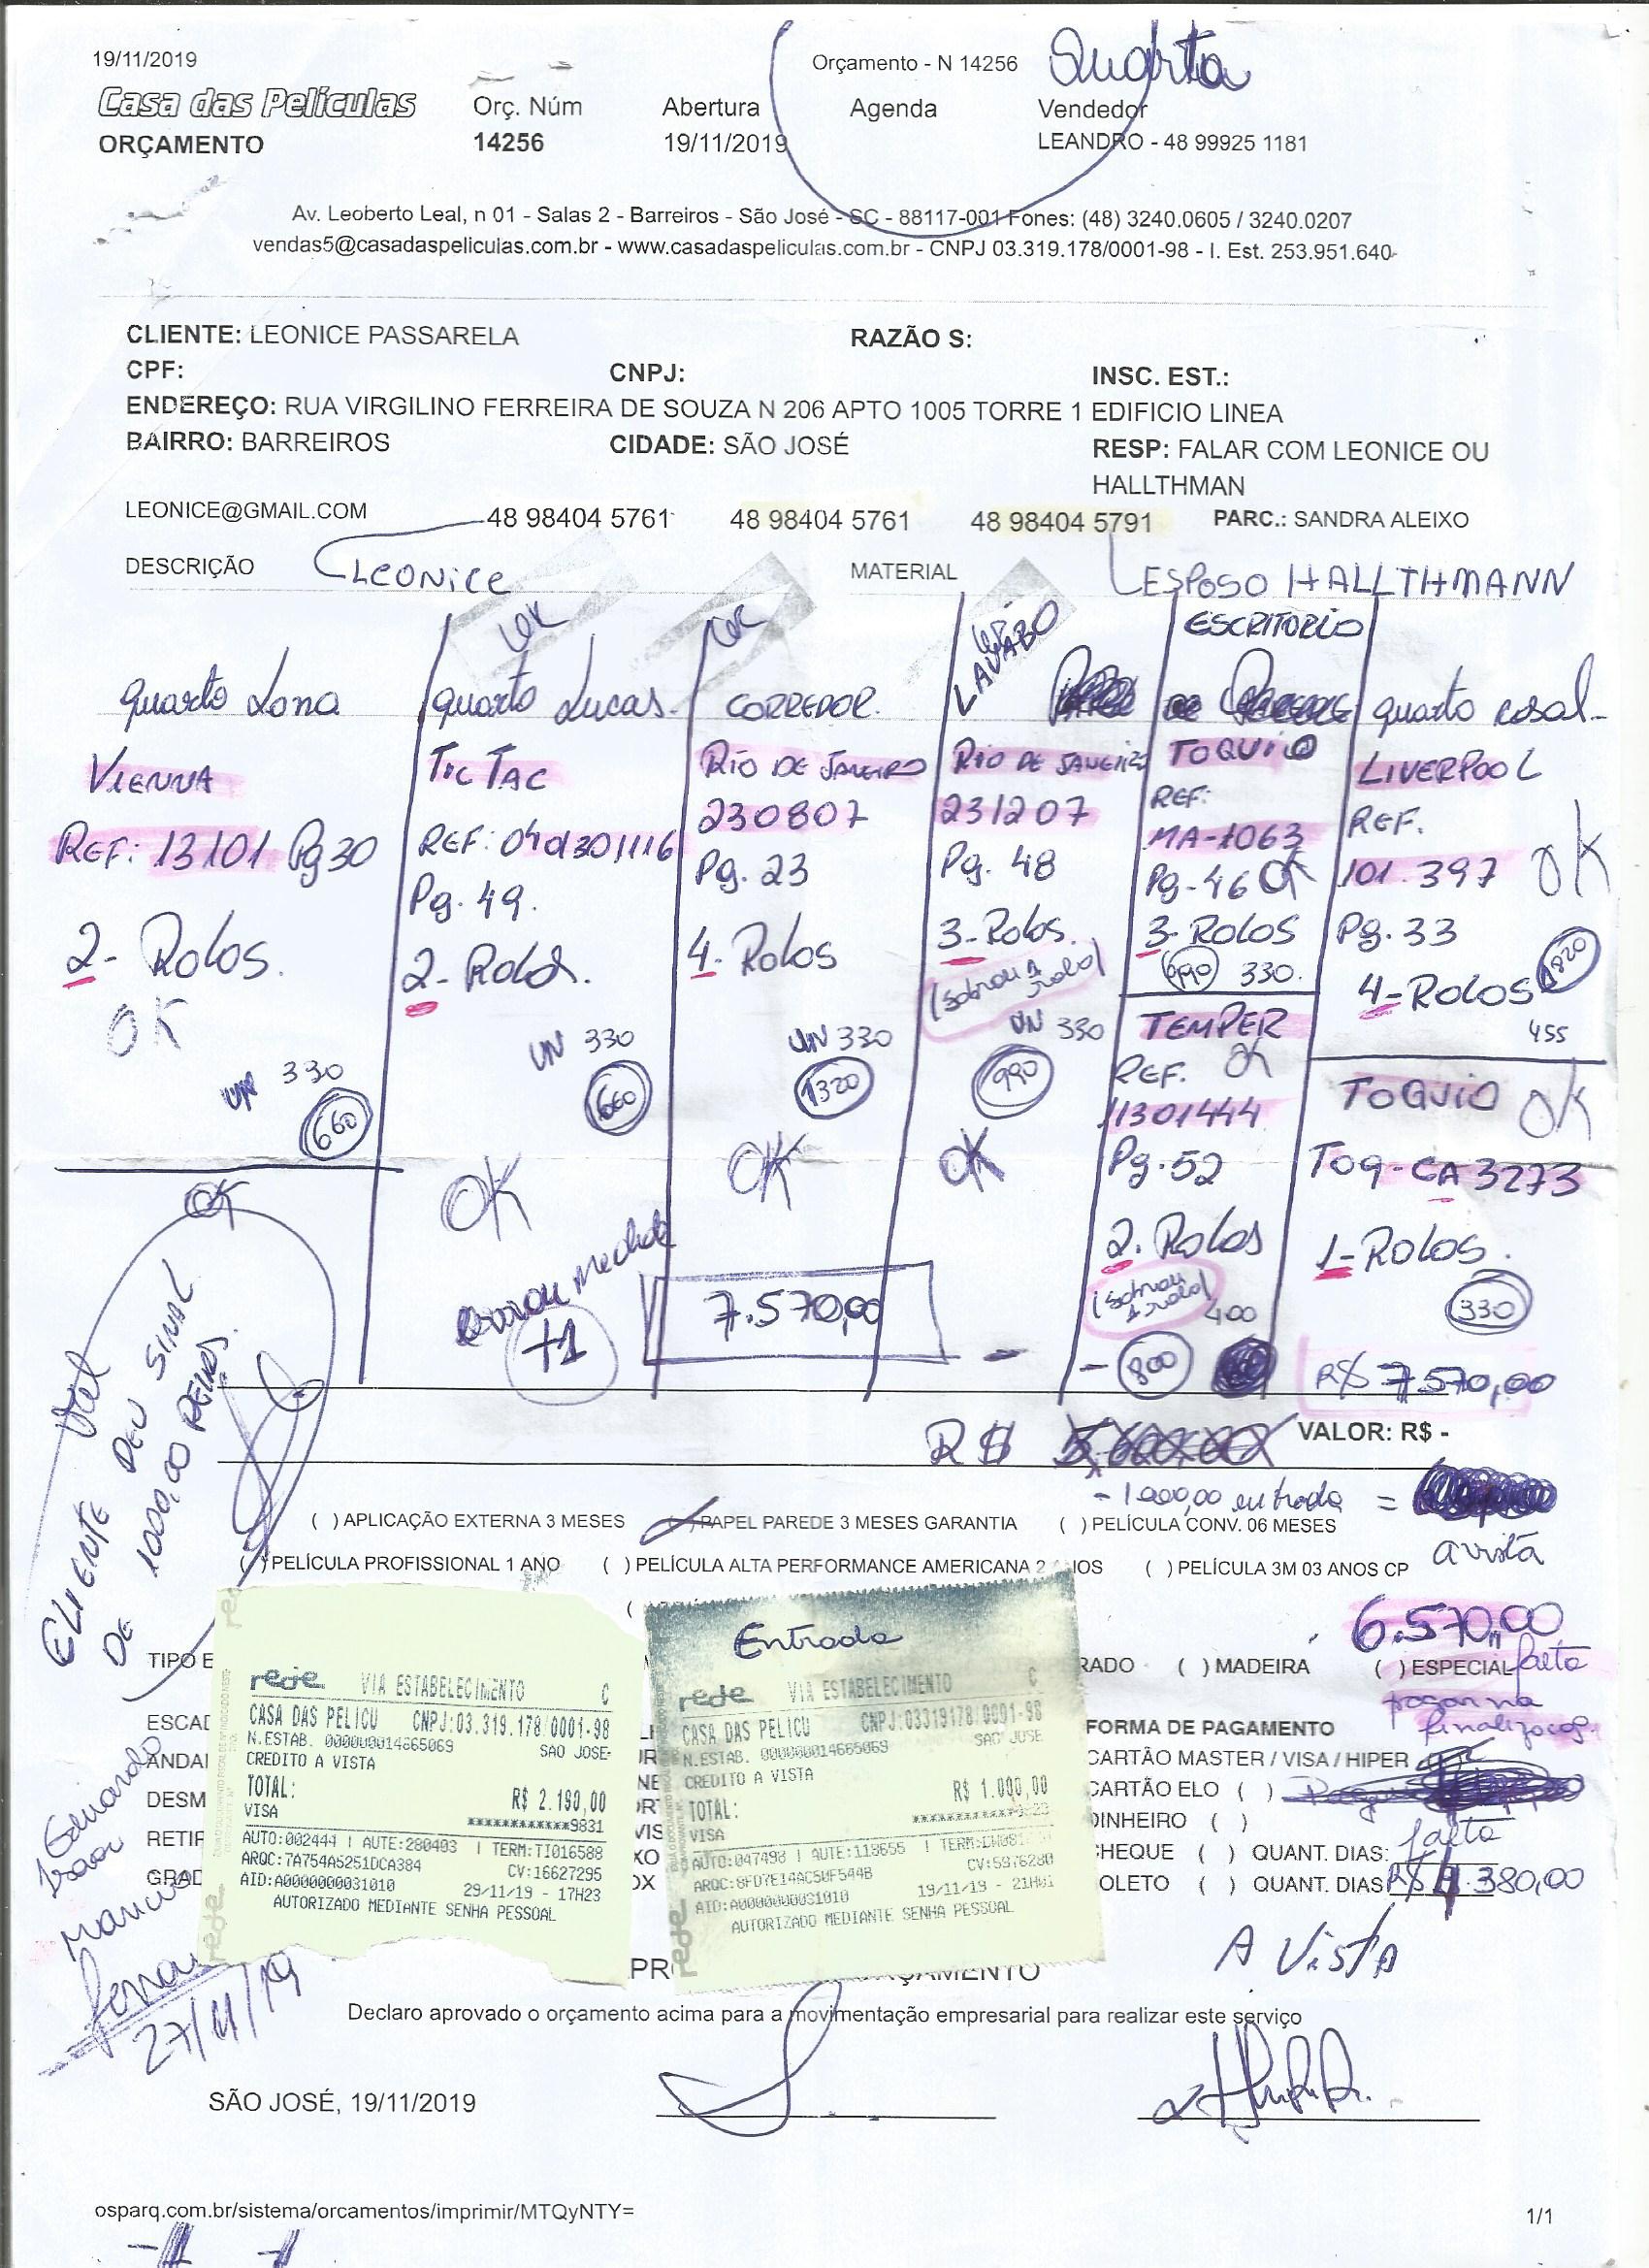 19/11/2019
Orçamento - N 14256
Quarta
Casa das Películas
Orç. Núm
Abertura
Agenda
Vendedor
ORÇAMENTO
14256
19/11/2019
LEANDRO - 48 99925 1181
Av. Leoberto Leal, n 01 - Salas 2 - Barreiros - São José - SC - 88117-001 Fones: (48) 3240.0605 / 3240.0207
vendas5@casadaspeliculas.com.br - www.casadaspeliculas.com.br - CNPJ 03.319.178/0001-98 - I. Est. 253.951.640-
CLIENTE: LEONICE PASSARELA
RAZÃO S:
CPF:
CNPJ:
INSC. EST.:
ENDEREÇO: RUA VIRGILINO FERREIRA DE SOUZA N 206 APTO 1005 TORRE 1 EDIFICIO LINEA
BAIRRO: BARREIROS
CIDADE: SÃO JOSÉ
RESP: FALAR COM LEONICE OU
HALLTHMAN
LEONICE@GMAIL.COM
48 98404 5761
48 98404 5761
48 98404 5791
PARC.: SANDRA ALEIXO
DESCRIÇÃO
LEONICE
MATERIAL
ESPOSO HALLTHMANN
quarto Lona
VIENNA
REF: 13101 Pg 30
2- Rolos.
OK
UN 330
660
OK
OK
quarto Lucas.
TIC TAC
REF: 0401301116
Pg. 49.
2- Rolos.
UN 330
660
OK
errou medida
+1
OK
CORREDOR.
RIO DE JANEIRO
230807
Pg. 23
4- Rolos
UN 330
1320
OK
7.570,00
LAVABO
RIO DE JANEIRO
231207
Pg. 48
3- Rolos.
(sobrou 1 rolo)
UN 330
990
OK
ESCRITORIO
TOQUIO
REF:
MA-1063
Pg-46 OK
3- ROLOS
990 330.
TEMPER
REF. OK
11301444
Pg. 52
2. Rolos
(sobrou 1 rolo)
400
- 800
quarto casal-
LIVERPOOL
REF.
101.397 OK
Pg. 33
4- ROLOS 1820
455
TOQUIO OK
TOQ-CA 3273
1- ROLOS.
330
R$ 7.570,00
Val
CLIENTE DEU SINAL
DE 1000,00 REAIS.
R$
VALOR: R$ -
- 1.000,00 entrada =
a vista
( ) APLICAÇÃO EXTERNA 3 MESES
PAPEL PAREDE 3 MESES GARANTIA
( ) PELÍCULA CONV. 06 MESES
( ) PELÍCULA PROFISSIONAL 1 ANO
( ) PELÍCULA ALTA PERFORMANCE AMERICANA 2 ANOS
( ) PELÍCULA 3M 03 ANOS CP
6.570,00
falta
pagar na
finalização.
TIPO E
RADO
( ) MADEIRA
( ) ESPECIAL
ESCAD
ANDAI
DESM
RETIR
GRAD
rede
VIA ESTABELECIMENTO
C
CASA DAS PELICU CNPJ:03.319.178/0001-98
N.ESTAB. 000000014665069 SAO JOSE-
CREDITO A VISTA
TOTAL: R$ 2.190,00
VISA ************9831
AUTO:002444 | AUTE:280403 | TERM:TI016588
ARQC:7A754A5251DCA384 CV:16627295
AID:A0000000031010 29/11/19 - 17H23
AUTORIZADO MEDIANTE SENHA PESSOAL
Entrada
rede
VIA ESTABELECIMENTO
C
CASA DAS PELICU CNPJ:03319178/0001-98
N.ESTAB. 000000014665069 SAO JOSE
CREDITO A VISTA
TOTAL: R$ 1.000,00
VISA
AUTO:047498 | AUTE:118655
CV:5976280
AID:A0000000031010 19/11/19 - 21H01
AUTORIZADO MEDIANTE SENHA PESSOAL
FORMA DE PAGAMENTO
CARTÃO MASTER / VISA / HIPER
CARTÃO ELO ( )
DINHEIRO ( )
CHEQUE ( ) QUANT. DIAS:
OLETO ( ) QUANT. DIAS
falta
R$ 4.380,00
A VISTA
Eduardo
Isaac
Marcus
27/11/19
ORÇAMENTO
Declaro aprovado o orçamento acima para a movimentação empresarial para realizar este serviço
SÃO JOSÉ, 19/11/2019
osparq.com.br/sistema/orcamentos/imprimir/MTQyNTY=
1/1